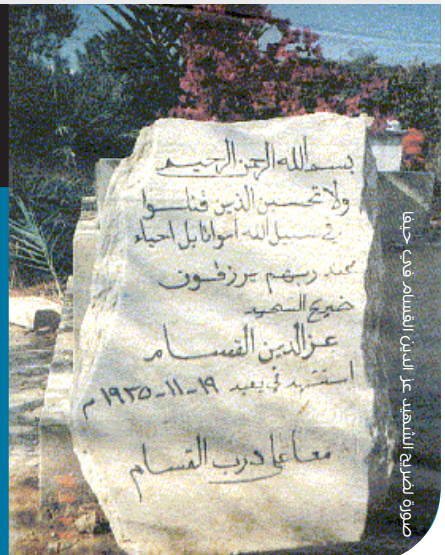 بسم الله الرحمن الرحيم
ولا تحسبن الذين قتلوا
في سبيل الله أمواتا بل احياء
عند ربهم يرزقون
ضريح الشهيد
عز الدين القسام
استشهد في يعبد ١٩-١١-١٩٣٥ م
معا على درب القسام
صورة لضريح الشهيد عز الدين القسام في حيفا